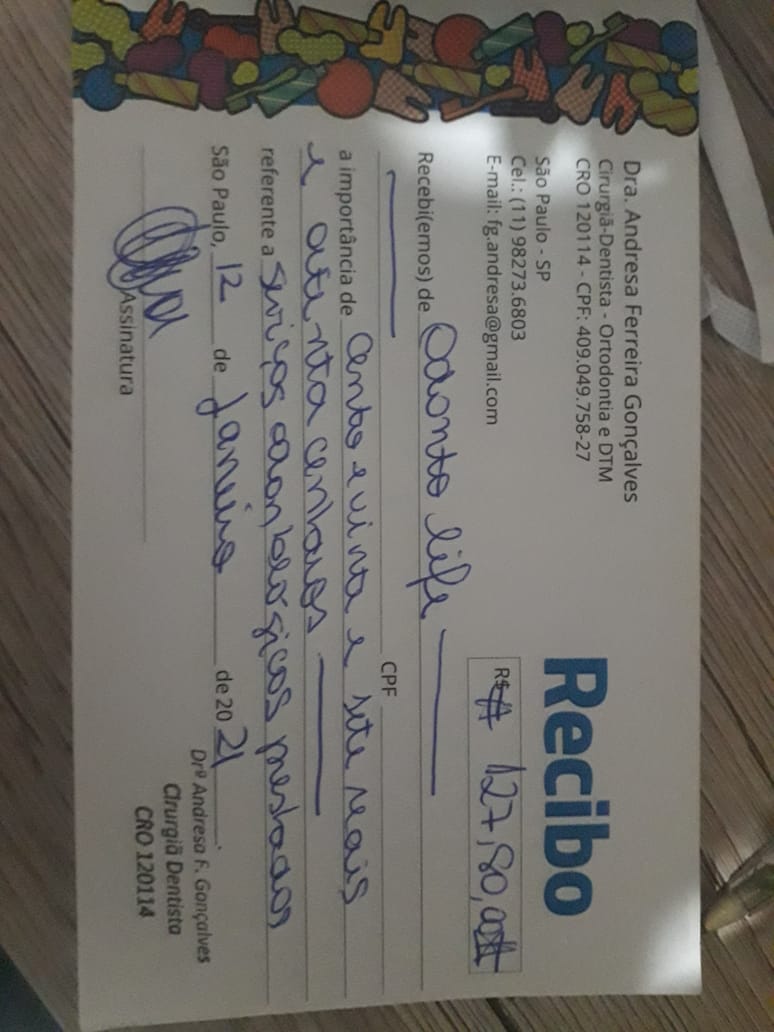 Dra. Andresa Ferreira Gonçalves
Cirurgiã-Dentista - Ortodontia e DTM
CRO 120114 - CPF: 409.049.758-27
São Paulo - SP
Cel.: (11) 98273.6803
E-mail: fg.andresa@gmail.com
Recibo
R$ # 127,80,00#
Recebi(emos) de Odonto life
CPF
a importância de Cento e vinta e sete reais
e oitenta centavos
referente a serviços odontologicos prestados
São Paulo, 12 de Janeiro de 2021.
Assinatura
Drª Andresa F. Gonçalves
Cirurgiã Dentista
CRO 120114